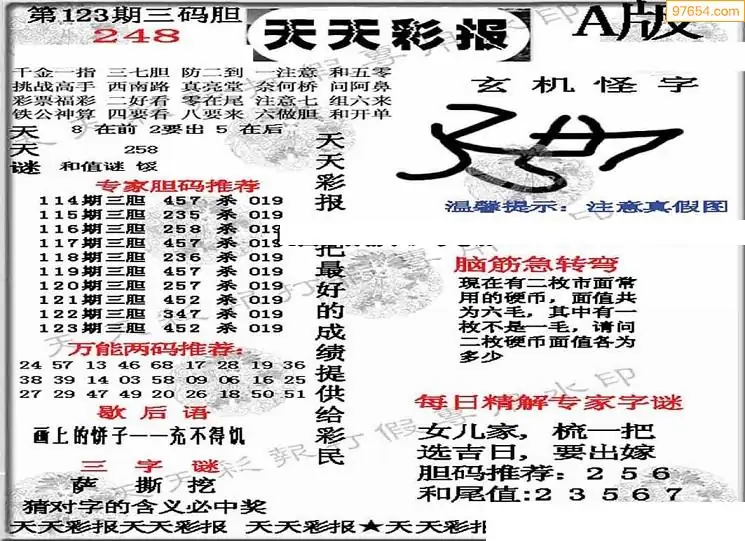 第123期三码胆
248
天天彩报
A版
97654.com
千金一指 三七胆 防二到 一注意 和五零
挑战高手 西南路 真亮堂 奈何桥 问阿鼻
彩票福彩 二好看 零在尾 注意七 组六来
铁公神算 四要看 八要来 六做胆 和开单
天天谜
8 在前 2要出 5 在后
258
和值谜 馁
专家胆码推荐
114期三胆 457 杀 019
115期三胆 235 杀 019
116期三胆 258 杀 019
117期三胆 457 杀 019
118期三胆 236 杀 019
119期三胆 457 杀 019
120期三胆 257 杀 019
121期三胆 452 杀 019
122期三胆 347 杀 019
123期三胆 452 杀 019
万能两码推荐:
24 57 13 46 68 17 28 19 36
38 39 14 03 58 09 06 16 25
27 29 47 49 20 26 18 50 51
歇后语
画上的饼子——充不得饥
三字谜
萨 撕 挖
猜对字的含义必中奖
天天彩报
把最好的成绩提供给彩民
玄机怪字
温馨提示: 注意真假图
脑筋急转弯
现在有二枚市面常
用的硬币，面值共
为六毛，其中有一
枚不是一毛，请问
二枚硬币面值各为
多少
每日精解专家字谜
女儿家，梳一把
选吉日，要出嫁
胆码推荐: 2 5 6
和尾值:2 3 5 6 7
天天彩报天天彩报 天天彩报★天天彩报